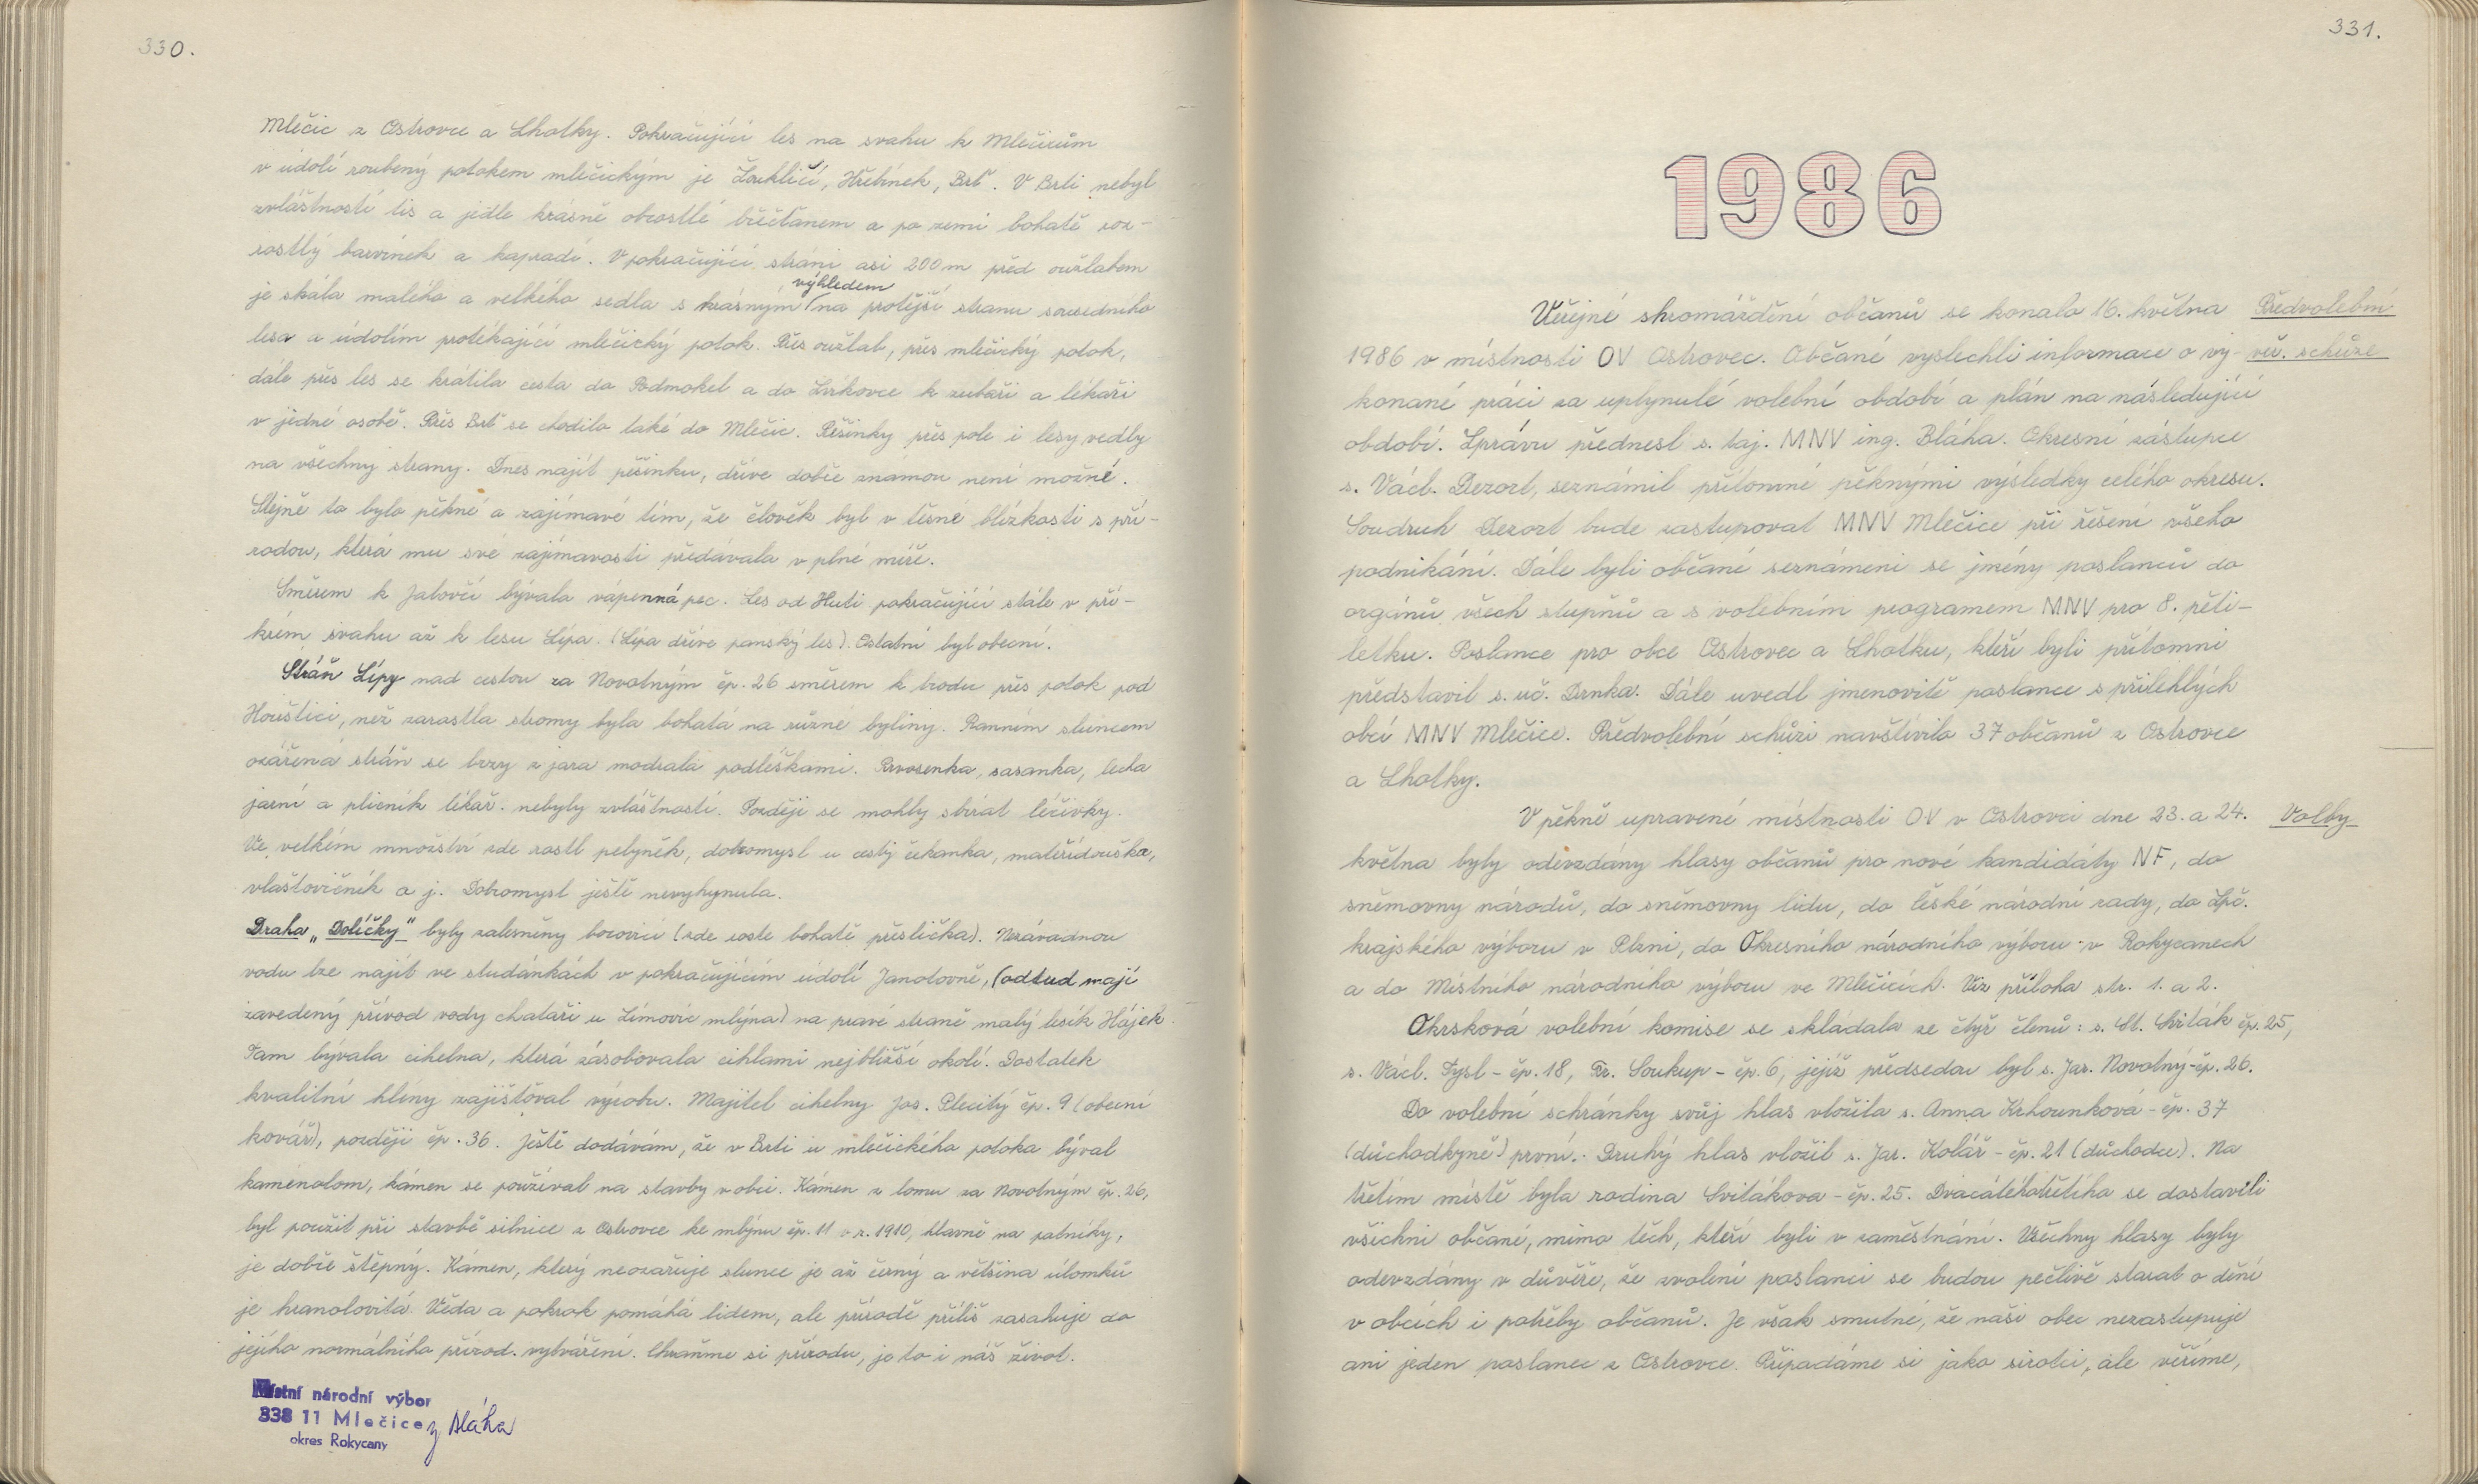 330.
Mlečic z Ostrovce a Lhotky. Pokračující les na svahu k Mlečicům
v údolí roubený potokem mlečickým je Žoukličí, Hřebínek, Brť. V Brti nebyl
zvláštností tis a jedle krásně obrostlé břečťanem a po zemi bohatě roz-
rostlý barvínek a kapradí. V pokračující stráni asi 200 m před oužlabem
je skála malého a velkého sedla s krásným výhledem na protější stranu sousedního
lesa a údolím protékající mlečický potok. Přes oužlab, přes mlečický potok,
dále přes les se krátila cesta do Podmokel a do Zvíkovce k zubaři a lékaři
v jedné osobě. Přes Brť se chodilo také do Mlečic. Pěšinky přes pole i lesy vedly
na všechny strany. Dnes najít pěšinku, dříve dobře známou není možné.
Stejně to bylo pěkné a zajímavé tím, že člověk byl v těsné blízkosti s pří-
rodou, která mu své zajímavosti předávala v plné míře.
Směrem k Jalovčí bývala vápenná pec. Les od Huti pokračující stále v pří-
krém svahu až k lesu Lípa. (Lípa dříve panský les). Ostatní byl obecní.
Stráň Lípy nad cestou za Novotným čp. 26 směrem k brodu přes potok pod
Houštici, než zarostla stromy byla bohatá na různé byliny. Ranním sluncem
ozářená stráň se brzy z jara modrala podléškami. Prvosenka, sasanka, lecha
jarní a plicník lékař. nebyly zvláštností. Později se mohly sbírat léčivky.
Ve velkém množství zde rostl pelyněk, dobromysl u cesty čekanka, mateřídouška,
vlaštovičník a j. Dobromysl ještě nevyhynula.
Draha „Dolíčky" byly zalesněny borovicí (zde roste bohatě přeslička). Nezávadnou
vodu lze najít ve studánkách v pokračujícím údolí Janotovně, (odtud mají
zavedený přívod vody chataři u Zímovic mlýna) na pravé straně malý lesík Hájek.
Tam bývala cihelna, která zásobovala cihlami nejbližší okolí. Dostatek
kvalitní hlíny zajišťoval výrobu. Majitel cihelny Jos. Plecitý čp. 9 (obecní
kovář), později čp. 36. Ještě dodávám, že v Brti u mlečického potoka býval
kamenolom, kámen se používal na stavby v obci. Kámen z lomu za Novotným čp. 26,
byl použit při stavbě silnice z Ostrovce ke mlýnu čp. 11 v r. 1910, hlavně na patníky,
je dobře štěpný. Kámen, který neozařuje slunce je až černý a většina úlomků
je hranolovitá. Věda a pokrok pomáhá lidem, ale přírodě příliš zasahuje do
jejího normálního přírod. vytváření. Chraňme si přírodu, je to i náš život.
Místní národní výbor
338 11 Mlečice
okres Rokycany
Bláha
331.
1986
Veřejné shromáždění občanů se konalo 16. května
Předvolební
1986 v místnosti OV Ostrovec. Občané vyslechli informace o vy-
veř. schůze
konané práci za uplynulé volební období a plán na následující
období. Zprávu přednesl s. taj. MNV ing. Bláha. Okresní zástupce
s. Václ. Dezort, seznámil přítomné pěknými výsledky celého okresu.
Soudruh Dezort bude zastupovat MNV Mlečice při řešení všeho
podnikání. Dále byli občané seznámeni se jmény poslanců do
orgánů všech stupňů a s volebním programem MNV pro 8. pěti-
letku. Poslance pro obce Ostrovec a Lhotku, kteří byli přítomni
představil s. uč. Drnka. Dále uvedl jmenovitě poslance s přilehlých
obcí MNV Mlečice. Předvolební schůzi navštívilo 37 občanů z Ostrovce
a Lhotky.
V pěkně upravené místnosti OV v Ostrovci dne 23. a 24.
Volby
května byly odevzdány hlasy občanů pro nové kandidáty NF, do
sněmovny národů, do sněmovny lidu, do české národní rady, do Zpč.
krajského výboru v Plzni, do Okresního národního výboru v Rokycanech
a do Místního národního výboru ve Mlečicích. Viz příloha str. 1. a 2.
Okrsková volební komise se skládala ze čtyř členů: s. St. Sviták čp. 25,
s. Václ. Tysl - čp. 18, Fr. Soukup - čp. 6, jejíž předsedou byl s. Jar. Novotný - čp. 26.
Do volební schránky svůj hlas vložila s. Anna Krhounková - čp. 37
(důchodkyně) první. Druhý hlas vložil s. Jar. Kolář - čp. 21 (důchodce). Na
třetím místě byla rodina Svitákova - čp. 25. Dvacátéhotřetího se dostavili
všichni občané, mimo těch, kteří byli v zaměstnání. Všechny hlasy byly
odevzdány v důvěře, že zvolení poslanci se budou pečlivě starat o dění
v obcích i potřeby občanů. Je však smutné, že naši obec nezastupuje
ani jeden poslanec z Ostrovce. Připadáme si jako sirotci, ale věříme,